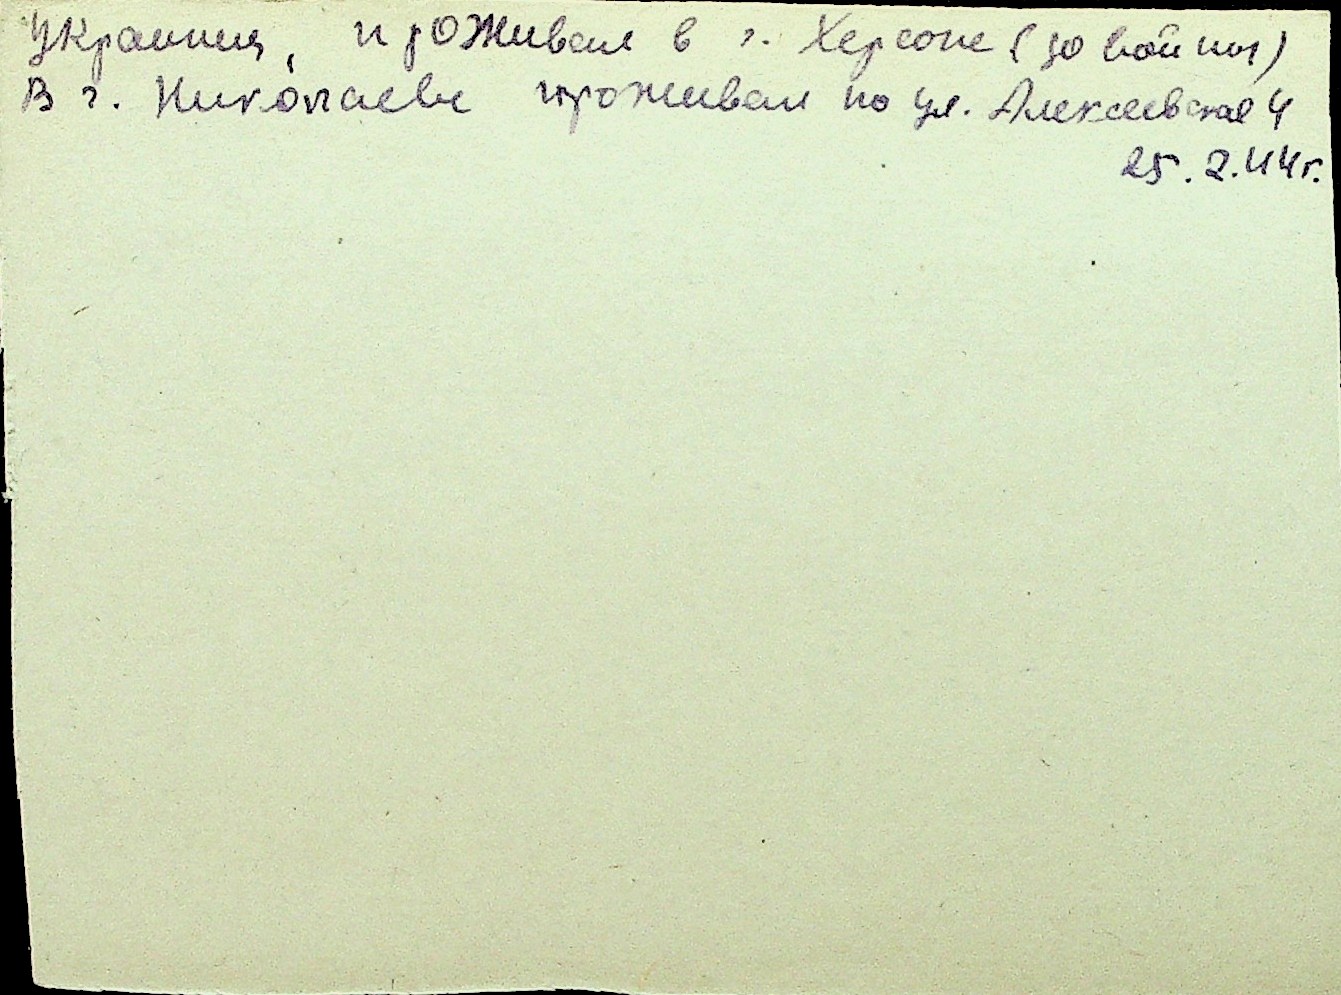 Украинец, проживал в г. Херсоне (до войны)
В г. Николаеве проживал по ул. Алексеевская 4
25.2.44г.